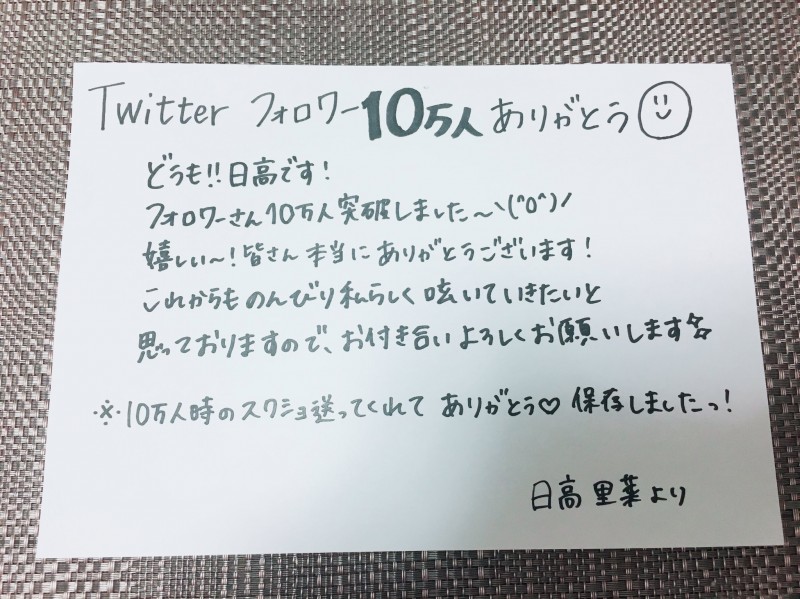 Twitter フォロワー10万人ありがとう
どうも!!日高です!
フォロワーさん10万人突破しました〜ヽ(^o^)ノ
嬉しい〜!皆さん本当にありがとうございます!
これからものんびり私らしく呟いていきたいと
思っておりますので、お付き合いよろしくお願いします☆
※10万人時のスクショ送ってくれてありがとう♡保存しましたっ!
日高里菜より